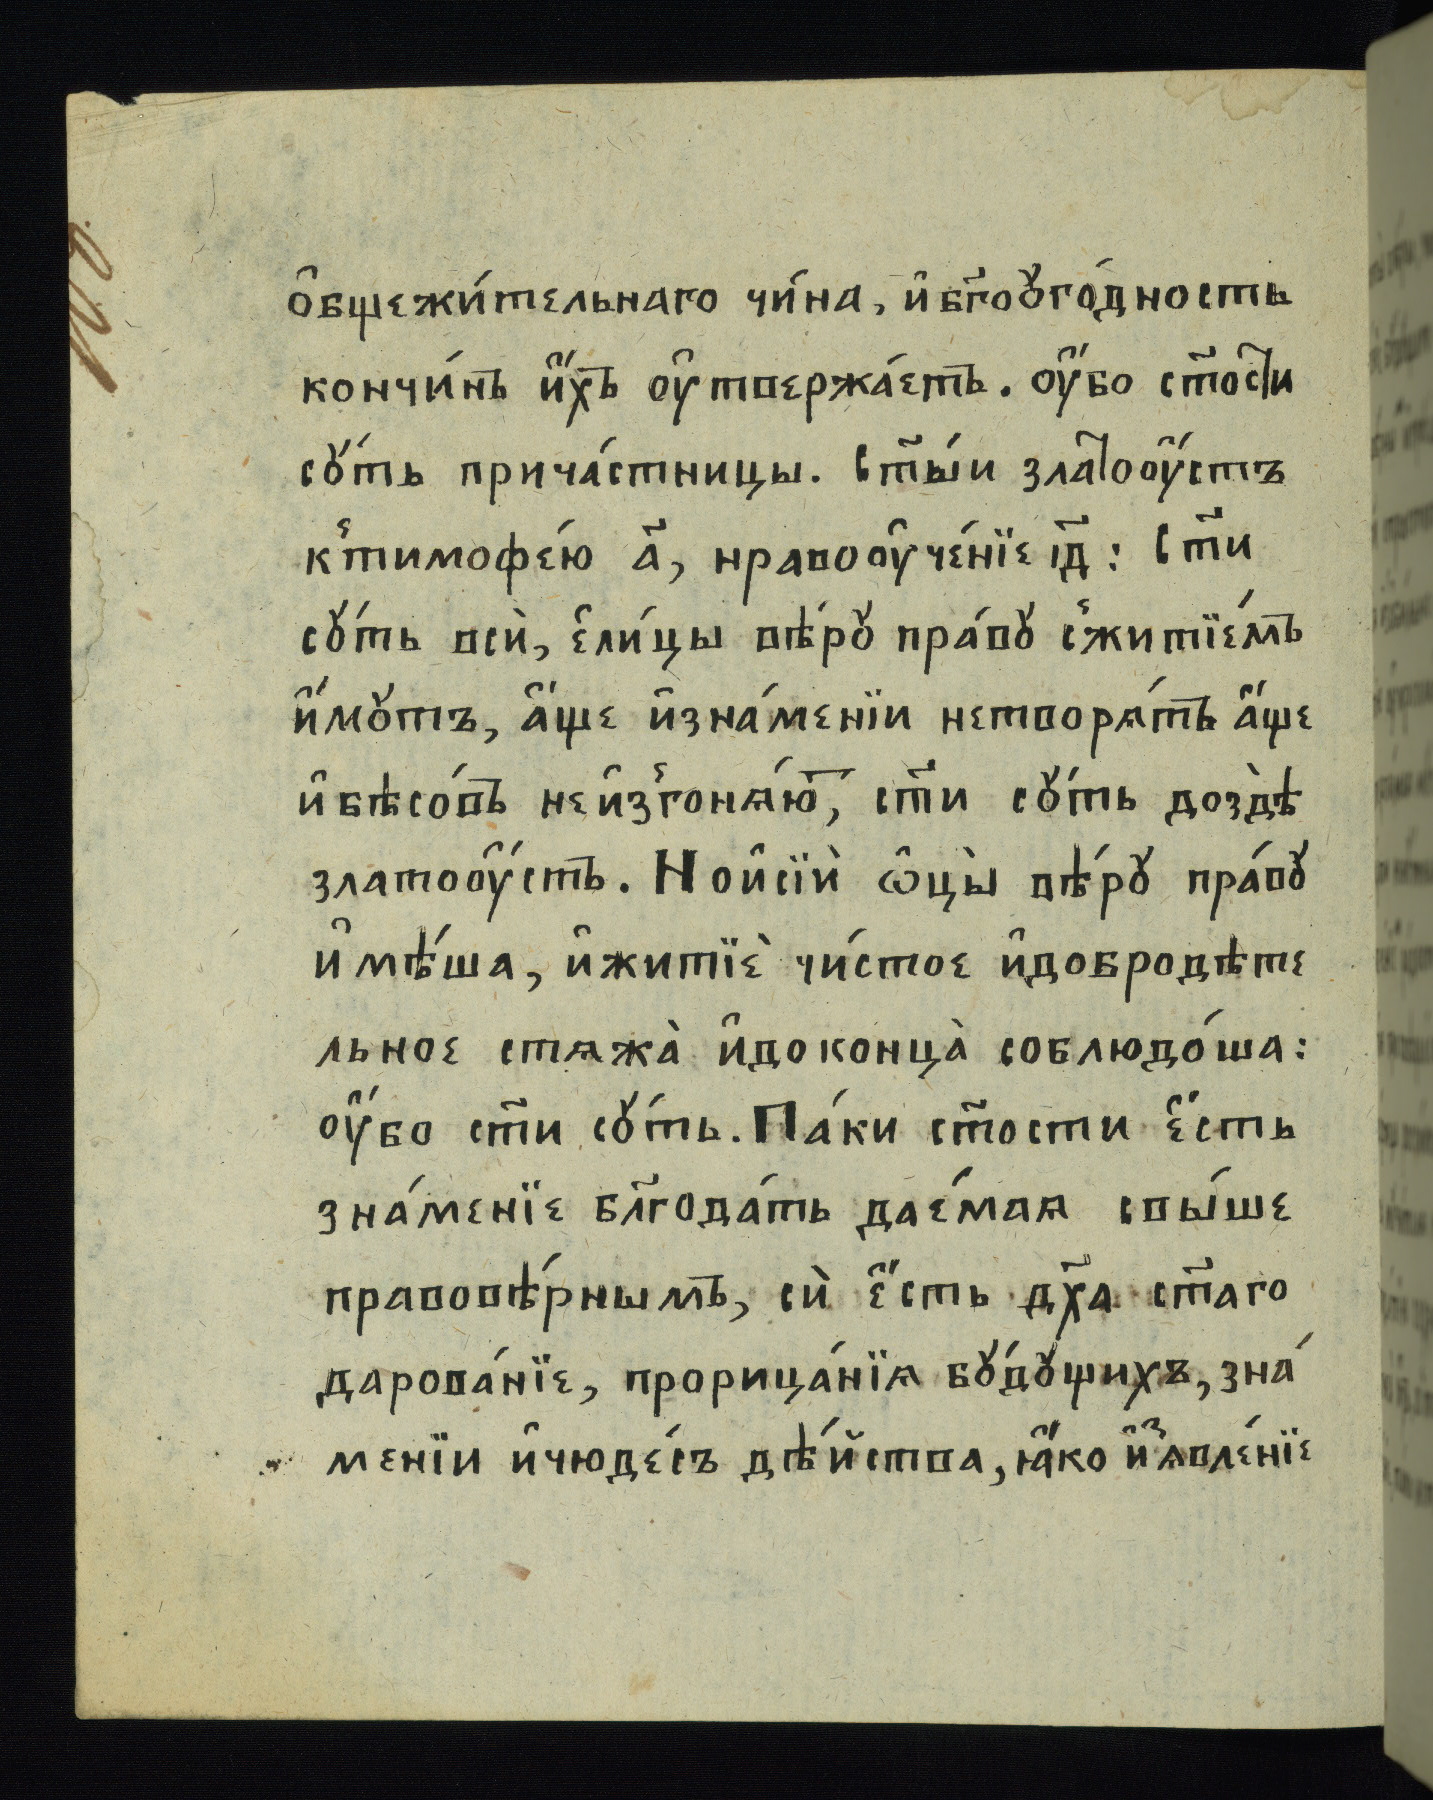 ѻ҆бщежи́тельнаго чи́на, и҆ бг҃оꙋго́дность
кончи́нъ и҆́хъ оу҆твержа́етъ. оу҆́бо ст҃ости
сꙋ́ть прича́стницы. Ст҃ы́и златооу҆́стъ
к тимоѳе́ю а҃, нравооу҆че́нїе і҃д: Ст҃и
сꙋ́ть всѝ, є҆ли́цы вѣ́рꙋ пра́вꙋ с житїе́мъ
и҆́мꙋтъ, а҆́ще и҆ зна́менїи нетворѧ́тъ а҆́ще
и҆ бѣсо́въ неи҆згонѧ́ю, ст҃и сꙋ́ть доздѣ̀
златооу҆́стъ. Но и҆ сїѝ ѻ҆ц҃ы̀ вѣ́рꙋ пра́вꙋ
и҆мѣ́ша, и҆ житїѐ чи́стое и҆ добродѣте
льное стѧжа̀ и҆ до конца̀ соблюдо́ша:
оу҆́бо ст҃и сꙋ́ть. Па́ки ст҃ости є҆́сть
зна́менїе бл҃года́ть дае́маѧ свы́ше
правовѣ́рнымъ, сѝ є҆́сть дх҃а ст҃аго
дарова́нїе, прорица́нїѧ бꙋ́дꙋщихъ, зна́
менїи и҆ чюде́съ дѣ́йства, ꙗ҆́ко и҆з̾ѧвле́нїе